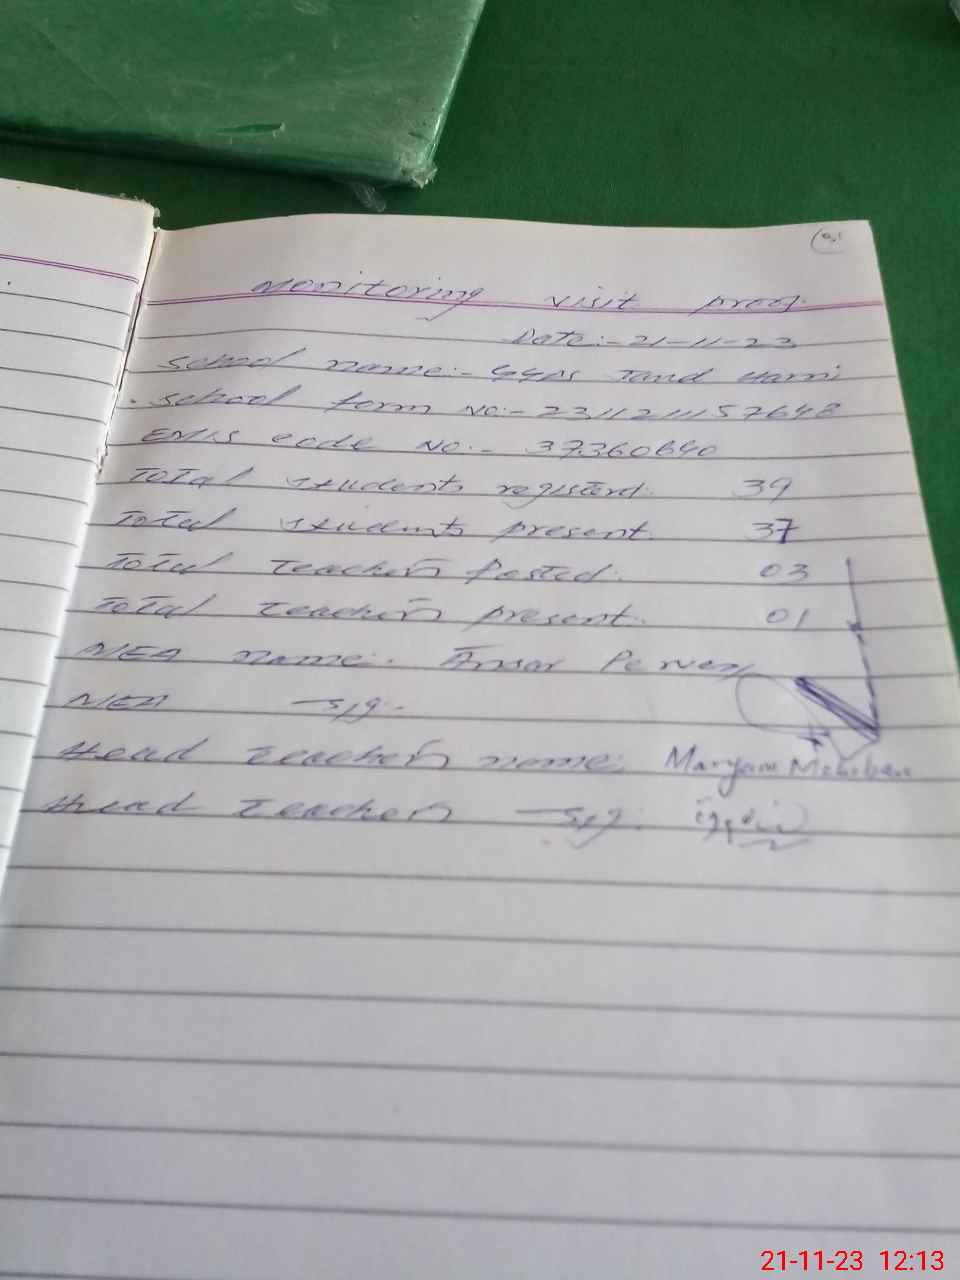 Monitoring visit proof.
Date:- 21-11-23
School name:- GGPS Tand Harni
School form No:- 2311211157648
EMIS code No.- 37360640
Total students registerd. 39
Total students present. 37
Total Teachers Posted. 03
Total Teachers present. 01
MEA name. Ansar Pervez
MEA Sig.-
Head Teachers name. Maryam
Head Teachers Sig.
21-11-23 12:13